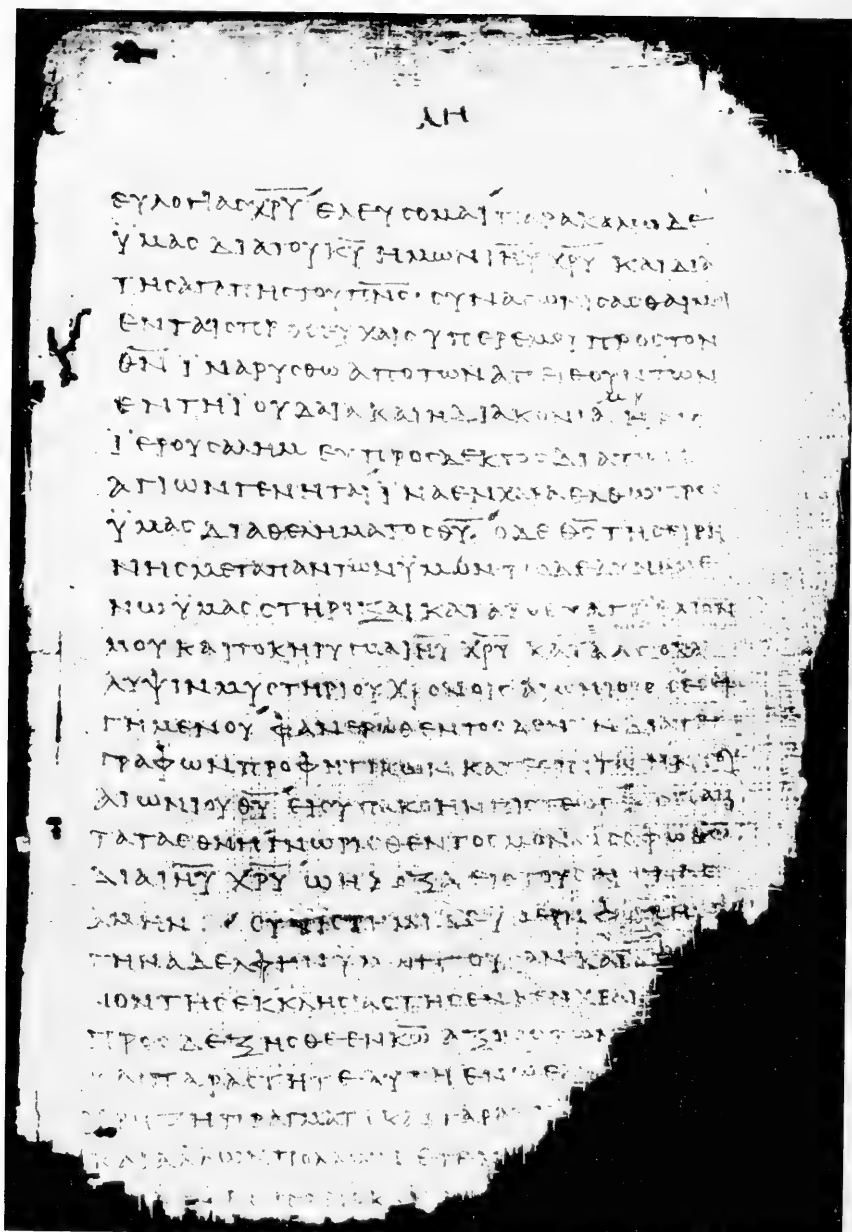 ΛΗ
ΕΥΛΟΓΙΑΣ ΧΡΥ ΕΛΕΥΣΟΜΑΙ ΠΑΡΑΚΑΛΩ ΔΕ
ΥΜΑΣ ΔΙΑ ΤΟΥ ΚΥ ΗΜΩΝ ΙΗΥ ΧΡΥ ΚΑΙ ΔΙΑ
ΤΗΣ ΑΓΑΠΗΣ ΤΟΥ ΠΝΣ ΣΥΝΑΓΩΝΙΣΑΣΘΑΙ ΜΟΙ
ΕΝ ΤΑΙΣ ΠΡΟΣΕΥΧΑΙΣ ΥΠΕΡ ΕΜΟΥ ΠΡΟΣ ΤΟΝ
ΘΝ ΙΝΑ ΡΥΣΘΩ ΑΠΟ ΤΩΝ ΑΠΕΙΘΟΥΝΤΩΝ
ΕΝ ΤΗ ΙΟΥΔΑΙΑ ΚΑΙ Η ΔΙΑΚΟΝΙΑ ΜΟΥ Η ΕΙΣ
ΙΕΡΟΥΣΑΛΗΜ ΕΥΠΡΟΣΔΕΚΤΟΣ ΔΙΑ
ΑΓΙΩΝ ΓΕΝΗΤΑΙ ΙΝΑ ΕΝ ΧΑΡΑ ΕΛΘΩ ΠΡΟΣ
ΥΜΑΣ ΔΙΑ ΘΕΛΗΜΑΤΟΣ ΘΥ Ο ΔΕ ΘΣ ΤΗΣ ΕΙΡΗ
ΝΗΣ ΜΕΤΑ ΠΑΝΤΩΝ ΥΜΩΝ ΤΩ ΔΕ ΔΥΝΑΜΕ
ΝΩ ΥΜΑΣ ΣΤΗΡΙΞΑΙ ΚΑΤΑ ΤΟ ΕΥΑΓΓΕΛΙΟΝ
ΜΟΥ ΚΑΙ ΤΟ ΚΗΡΥΓΜΑ ΙΗΥ ΧΡΥ ΚΑΤΑ ΑΠΟΚΑ
ΛΥΨΙΝ ΜΥΣΤΗΡΙΟΥ ΧΡΟΝΟΙΣ ΑΙΩΝΙΟΙΣ ΣΕΣΙ
ΓΗΜΕΝΟΥ ΦΑΝΕΡΩΘΕΝΤΟΣ ΔΕ ΝΥΝ ΔΙΑ ΤΕ
ΓΡΑΦΩΝ ΠΡΟΦΗΤΙΚΩΝ ΚΑΤ ΕΠΙΤΑΓΗΝ ΤΟΥ
ΑΙΩΝΙΟΥ ΘΥ ΕΙΣ ΥΠΑΚΟΗΝ ΠΙΣΤΕΩΣ ΕΙΣ ΠΑΝ
ΤΑ ΤΑ ΕΘΝΗ ΓΝΩΡΙΣΘΕΝΤΟΣ ΜΟΝΩ ΣΟΦΩ ΘΩ
ΔΙΑ ΙΗΥ ΧΡΥ Ω Η ΔΟΞΑ ΕΙΣ ΤΟΥΣ ΑΙΩΝΑΣ
ΑΜΗΝ ΣΥΝΙΣΤΗΜΙ ΔΕ ΥΜΕΙΝ ΦΟΙΒΗΝ
ΤΗΝ ΑΔΕΛΦΗΝ ΥΜΩΝ ΟΥΣΑΝ ΚΑΙ
ΝΟΝ ΤΗΣ ΕΚΚΛΗΣΙΑΣ ΤΗΣ ΕΝ ΚΕΝΧΡΕΑΙΣ
ΠΡΟΣΔΕΞΗΣΘΕ ΕΝ ΚΩ ΑΞΙΩΣ ΤΩΝ
ΚΑΙ ΠΑΡΑΣΤΗΤΕ ΑΥΤΗ ΕΝ Ω ΕΑΝ
ΧΡΗΖΗ ΠΡΑΓΜΑΤΙ ΚΑΙ ΓΑΡ Α
ΚΑΙ ΑΛΛΩΝ ΠΟΛΛΩΝ